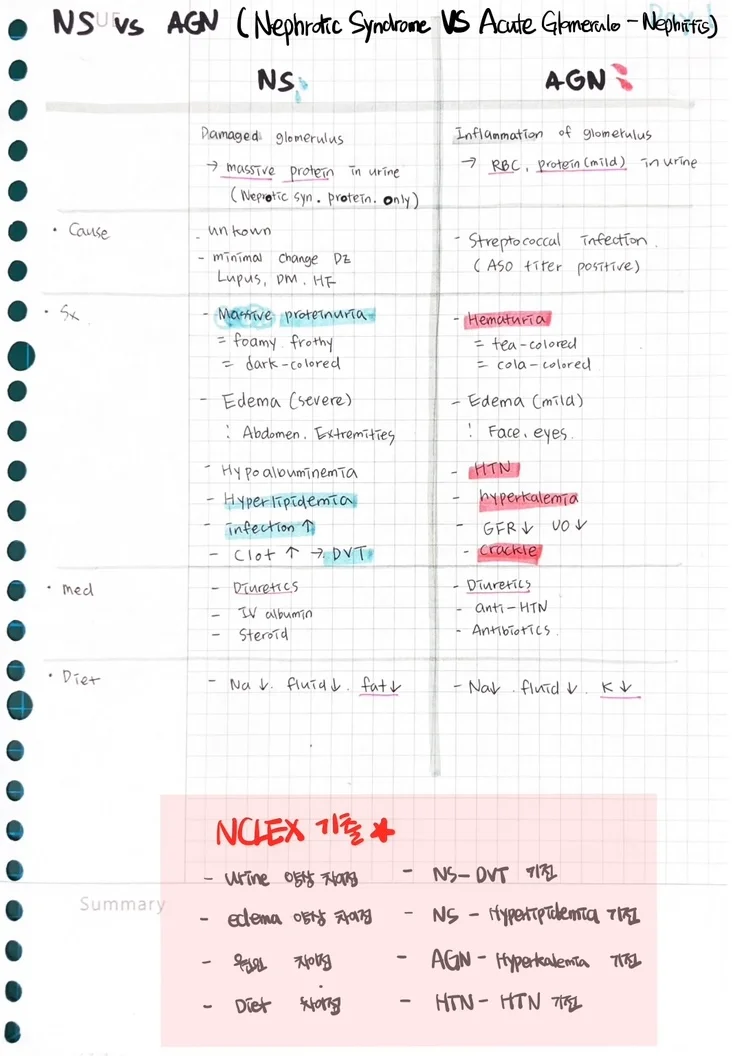 NS vs AGN ( Nephrotic Syndrome VS Acute Glomerulo - Nephritis)
NS
AGN
Damaged glomerulus
→ massive protein in urine
(Neprotic syn. protein. only)
Inflammation of glomerulus
→ RBC, protein(mild) in urine
• Cause
- unkown
- minimal change Dz
Lupus, DM. HF
- Streptococcal infection.
(ASO titer positive)
• Sx
- Massive proteinuria
= foamy. frothy
= dark-colored
- Edema (severe)
: Abdomen. Extremities
- Hypoalbuminemia
- Hyperlipidemia
- infection ↑
- Clot ↑ → DVT
- Hematuria
= tea-colored
= cola-colored
- Edema (mild)
: Face. eyes.
- HTN
- hyperkalemia
- GFR↓ UO↓
- Crackle
• med
- Diuretics
- IV albumin
- Steroid
- Diuretics
- anti-HTN
- Antibiotics.
• Diet
- Na↓. fluid↓. fat↓
- Na↓. fluid↓. K↓
NCLEX 기출 ★
- Urine 양상 차이점
- edema 양상 차이점
- 원인 차이점
- Diet 차이점
- NS-DVT 기전
- NS - Hyperlipidemia 기전
- AGN - Hyperkalemia 기전
- HTN - HTN 기전
Summary